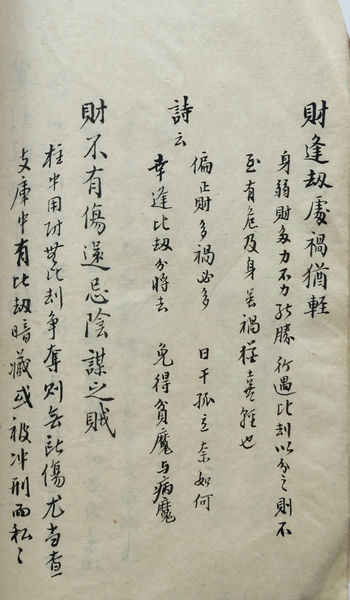 財逢劫處禍猶輕
身弱財多力不能勝行遇比劫以分之則不
至有危及身其禍猶喜輕也
詩云
偏正財多禍必多 日干孤立奈如何
幸逢比劫分將去 免得貧魔与病魔
財不有傷還忌陰謀之賊
柱中用財無比劫争奪則無所傷尤当查
支庫中有比劫暗藏或被冲刑而私〻